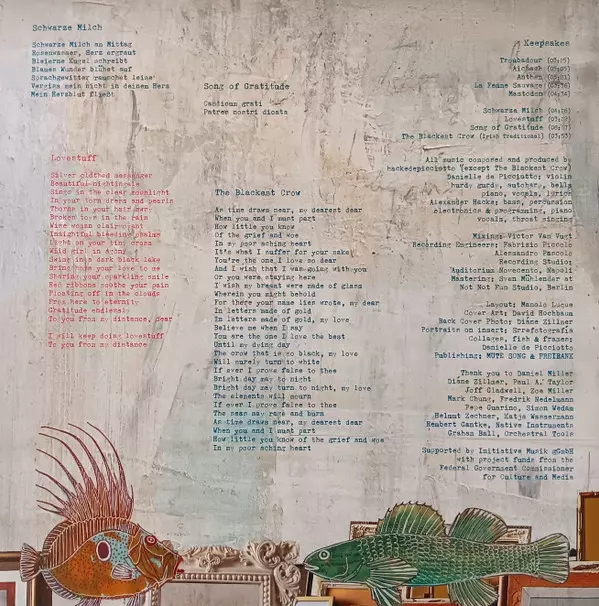 Schwarze Milch
Schwarze Milch am Mittag
Rosenwasser, Herz ergraut
Bleierne Kugel schreibt
Blaues Wunder blühet auf
Sprachgewitter rauschet leise
Vergiss mein nicht in deinem Herz
Mein Herzblut fließt
Song of Gratitude
Canticus grati
Patrem nostri dicata
Lovestuff
Silver clothed messenger
Beautiful nightingale
Sings in the clear moonlight
In your torn dress and pearls
Thorns in your hair
Broken love in the rain
Wise woman clairvoyant
Insightful bleeding
Light on your tiny cross
Wild girl in agony
Swing in a dark black lake
Bring home your love to me
Sharing your sparkling
Red ribbons soothe your pain
Floating off in the clouds
From here to eternity
Gratitude endlessly
To you from my distance, dear
I will keep doing lovestuff
To you from my distance
The Blackest Crow
As time draws near, my dearest dear
When you and I must part
How little you know
Of the grief and woe
In my poor aching heart
It's what I suffer for your sake
You're the one I love so dear
And I wish that I was going with you
Or you were staying here
I wish my breast were made of glass
Wherein you might behold
For there your name lies wrote, my dear
In letters made of gold
In letters made of gold, my love
Believe me when I say
You are the one I love the best
Until my dying day
The crow that is so black, my love
Will surely turn to white
If ever I prove false to thee
Bright day may to night
Bright day may turn to night, my love
The elements will mourn
If ever I prove false to thee
The seas may rage and burn
As time draws near, my dearest dear
When you and I must part
How little you know of the grief and woe
In my poor aching heart
Keepsakes
Troubadour
Aichach
Anthem
La Femme Sauvage
Mastodon
Schwarze Milch
Lovestuff
Song of Gratitude
The Blackest Crow (Irish Traditional)
All music composed and produced by
hackedepicciotto (except The Blackest Crow)
Danielle de Picciotto: violin
hurdy gurdy, autoharp, bells
piano, vocals, lyrics
Alexander Hacke: bass, percussion
electronics & programming, piano
vocals, throat singing
Mixing: Victor Van Vugt
Recording Engineers: Fabrizio Piccolo
Alessandro Pascolo
Recording Studio:
Auditorium Novecento, Napoli
Mastering: Sven Mühlender at
Not Not Fun Studio, Berlin
Layout: Manolo Luque
Cover Art: David Hochbaum
Back Cover Photo: Diane Zillner
Portraits on insert: Srrefotografia
Collages, fish & frames:
Danielle de Picciotto
Publishing: MUTE SONG & FREIBANK
Thank you to Daniel Miller
Diane Zillner, Paul A. Taylor
Jeff Gladwell, Zoe Miller
Mark Chung, Fredrik Nedelmann
Pepe Guarino, Simon Wedam
Helmut Zechner, Katja Wassermann
Rembert Gantke, Native Instruments
Graham Ball, Orchestral Tools
Supported by Initiative Musik gGmbH
with project funds from the
Federal Government Commissioner
for Culture and Media